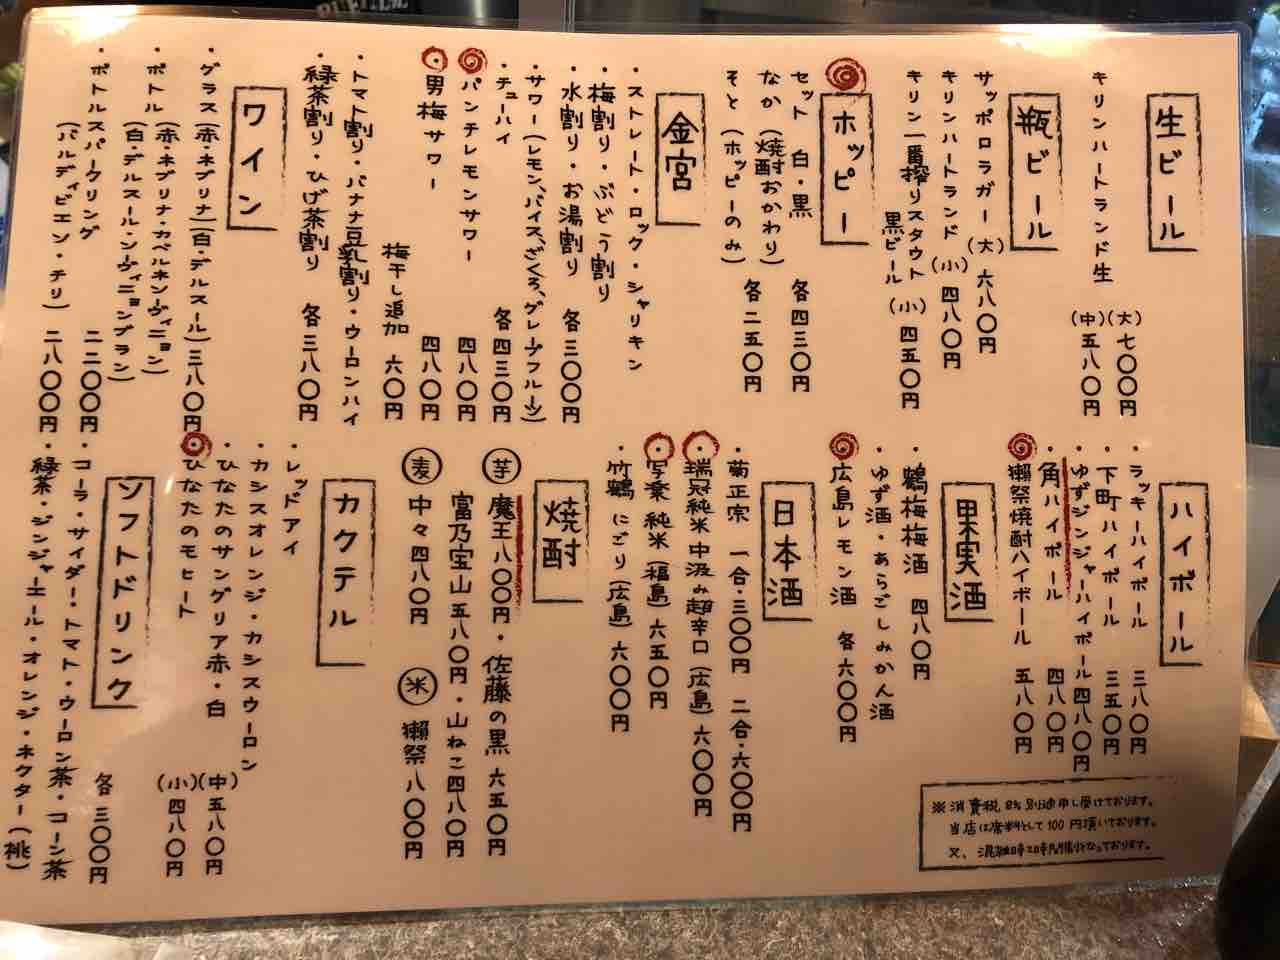 生ビール
キリンハートランド生
(大) 七〇〇円
(中) 五八〇円
瓶ビール
サッポロラガー (大) 六八〇円
キリンハートランド (小) 四八〇円
キリン一番搾りスタウト
黒ビール (小) 四五〇円
ホッピー
セット 白・黒 各 四三〇円
なか (焼酎おかわり)
そと (ホッピーのみ) 各 二五〇円
金宮
・ストレート・ロック・シャリキン
・梅割り・ぶどう割り
・水割り・お湯割り 各 三〇〇円
・サワー (レモン、バイス、ざくろ、グレープフルーツ)
・チューハイ 各 四三〇円
・パンチレモンサワー 四八〇円
・男梅サワー 四八〇円
梅干し追加 六〇円
・トマト割り・バナナ豆乳割り・ウーロンハイ
・緑茶割り・ひげ茶割り 各 三八〇円
ワイン
・グラス (赤・ネブリナ) (白・デルスール) 三八〇円
・ボトル (赤・ネブリナ・カベルネソーヴィニョン)
(白・デルスール・ソーヴィニョンブラン) 二二〇〇円
・ボトルスパークリング
(バルディビエソ・チリ) 二八〇〇円
ハイボール
・ラッキーハイボール 三八〇円
・下町ハイボール 三五〇円
・ゆずジンジャーハイボール 四八〇円
・角ハイボール 四八〇円
・獺祭焼酎ハイボール 五八〇円
果実酒
・鶴梅梅酒 四八〇円
・ゆず酒・あらごしみかん酒
・広島レモン酒 各 六〇〇円
日本酒
・菊正宗 一合・三〇〇円 二合・六〇〇円
・瑞冠純米 中汲み超辛口 (広島) 六〇〇円
・写楽 純米 (福島) 六五〇円
・竹鶴 にごり (広島) 六〇〇円
焼酎
芋 魔王八〇〇円・佐藤の黒 六五〇円
富乃宝山五八〇円・山ねこ四八〇円
麦 中々四八〇円 米 獺祭 八〇〇円
カクテル
・レッドアイ
・カシスオレンジ・カシスウーロン
・ひなたのサングリア赤・白 (中) 五八〇円
・ひなたのモヒート (小) 四八〇円
ソフトドリンク
・コーラ・サイダー・トマト・ウーロン茶・コーン茶
・緑茶・ジンジャエール・オレンジ・ネクター (桃)
各 三〇〇円
※消費税8%別途申し受けております。
当店は席料として100円頂いております。
又、混雑時2時間制となっております。